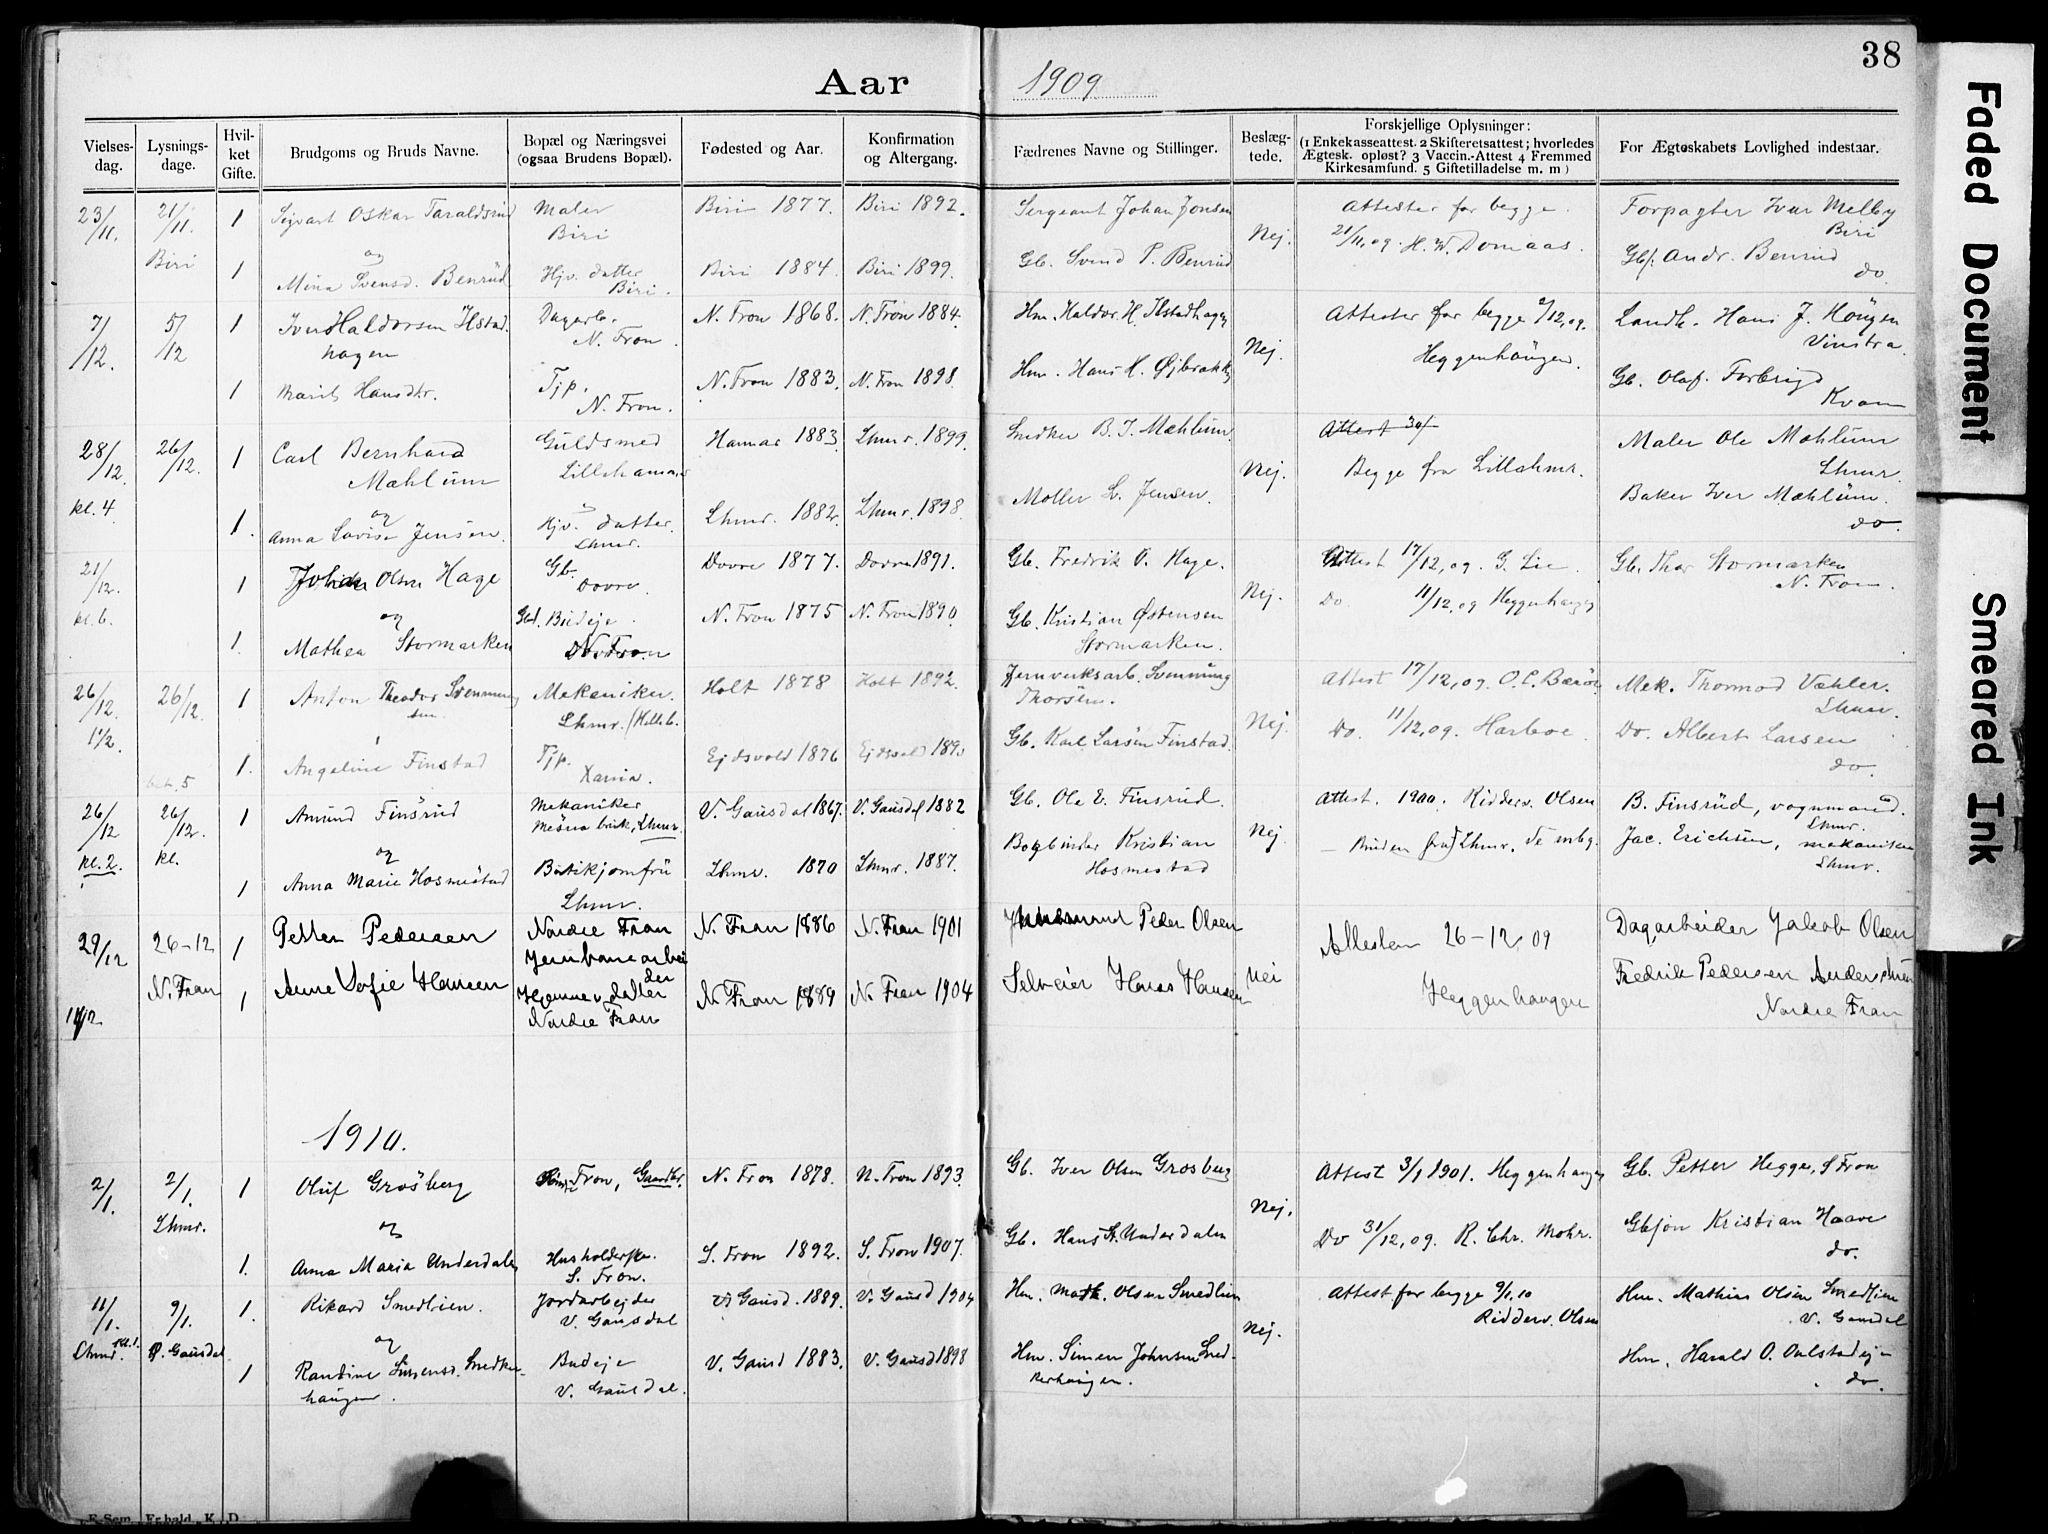 38
Aar 1909
Vielses-
dag.
Lysnings-
dage.
Hvil-
ket
Gifte.
Brudgoms og Bruds Navne.
Bopæl og Næringsvei
(ogsaa Brudens Bopæl).
Fødested og Aar.
Konfirmation
og Altergang.
Fædrenes Navne og Stillinger.
Beslæg-
tede.
Forskjellige Oplysninger:
(1 Enkekasseattest. 2 Skifteretsattest; hvorledes
Ægtesk. opløst? 3 Vaccin.-Attest 4 Fremmed
Kirkesamfund. 5 Giftetilladelse m. m)
For Ægteskabets Lovlighed indestaar.
23/11.
21/11.
Biri
1
Sigvart Oskar Taraldsrud
og
1
Mina Svensd. Benrud
Maler
Biri
Hjv. datter
Biri.
Biri 1877.
Biri 1884.
Biri 1892.
Biri 1899.
Sergeant Johan Jonsen
Gb. Svend P. Benrud
Nej.
Attester for begge.
21/11,09. H. W. Domaas.
Forpagter Ivar Melby
Biri
Gbf. Andr. Benrud
do
7/12.
5/12
1
Iver Haldorsen Ilstad
hagen
1
Marit Hansdtr.
Dagarb.
N. Fron.
Tjp.
N. Fron.
N. Fron 1868.
N. Fron 1883.
N. Fron 1884.
N. Fron 1898.
Hm. Haldor H. Ilstadhagen
Hm. Hans H. Øjbrakken
Nej.
Attester for begge 2/12,09.
Heggenhaugen.
Landh. Hans J. Haugen
Vinstra.
Gb. Olaf Forbrigd
Kvam
28/12.
kl. 4
26/12.
1
Carl Bernhard
Mæhlum
og
1.
Anna Lovise Jensen
Guldsmed
Lillehammer
Hjv. datter.
Lhmr.
Hamar 1883
Lhmr. 1882.
Lhmr. 1899.
Lhmr. 1898.
Snedker B. J. Mæhlum.
Møller L. Jensen.
Nej.
Attest 30/
Begge fra Lillehmr.
Maler Ole Mæhlum
Lhmr.
Baker Iver Mæhlum.
do
21/12.
kl. 6.
1
Johan Olsen Hage
og
1.
Mathea Stormarken
Gb.
Dovre.
Gbd. Budeje.
N. Fron
Dovre 1877
N. Fron 1875
Dovre 1891.
N. Fron 1890
Gb. Fredrik O. Hage.
Gb. Kristian Østensen
Stormarken.
Nej.
Attest 17/12,09 G. Lie.
Do. 11/12,09 Heggenhaugen
Gb. Thor Stormarken
N. Fron.
26/12.
1 1/2
26/12.
bet. 5
1
Anton Theodor Svennung
sen
1.
Angeline Finstad
Mekaniker.
Lhmr.
Tjp.
Xania.
Holt 1878
Ejdsvold 1876
Holt 1892.
Ejdsvold 1890
Jernverksarb. Svennung
Thorsen.
Gb. Karl Larsen Finstad.
Nej.
Attest 17/12,09. O. C. Barøe
Do. 11/12,09. Harboe.
Mek. Thormod Væhler.
Lhmr.
Do. Albert Larsen
do.
26/12
kl. 2.
26/12.
kl.
1
Amund Finsrud
og
1
Anna Marie Hosmestad
Mekaniker
Mesna bruk, Lhmr.
Butikjomfru
Lhmr.
V. Gausdal 1867.
Lhmr. 1870
V. Gausdal 1882
Lhmr. 1887.
Gb. Ole E. Finsrud.
Bogbinder Kristian
Hosmestad
Nej.
Attest. 1900. Ridderv. Olsen
– Bruden fra Lhmr.
B. Finsrud, vognmand.
Lhmr.
Jac. Erichsen, mekaniker
Lhmr.
29/12
11/12
26–12
N. Fron
1
Petter Pedersen
1
Anne Sofie Hansen
Nordre Fron
Jernbanearbei
der
Hjemmev. datter
Nordre Fron
N. Fron 1886
N. Fron 1889
N. Fron 1901
N. Fron 1904
Husmand Peder Olsen
Selveier Hans Hansen
Nei
Attester 26–12 09
Heggenhaugen
Dagarbeider Jakob Olsen
Fredrik Pedersen
Nordre Fron
1910.
2/1.
2/1.
Lhmr.
1
Oluf Grosberg
og
1.
Anna Maria Underdalen
Fron, Gaardbr.
Husholderske.
S. Fron.
N. Fron 1878.
S. Fron 1892.
N. Fron 1893.
S. Fron 1907.
Gb. Iver Olsen Grosberg
Gb. Hans A. Underdalen
Nej.
Attest 3/1 1901. Heggenhaugen
Do 31/12,09. R. Chr. Mohr.
Gb. Petter Hegge, S. Fron
Gbsøn Kristian Haave
do.
11/1.
Lhmr. kl. 1.
9/1.
Ø. Gausdal
1.
Rikard Smedlien.
og
1
Randine Simensd. Snedker-
haugen.
Jordarbejder
V. Gausdal
Budeje
V. Gausdal.
V. Gausd. 1889.
V. Gausd 1883.
V. Gausd 1904
V. Gausd 1898
Hm. Math. Olsen Smedlien
Hm. Simen Johnsen Sned-
kerhaugen.
Nej.
Attest for begge 9/1.10
Ridderv. Olsen
Hm. Mathias Olsen Smedlien
V. Gausdal
Hm. Harald O. Onlstadejen
do.
Faded Document
Smeared Ink